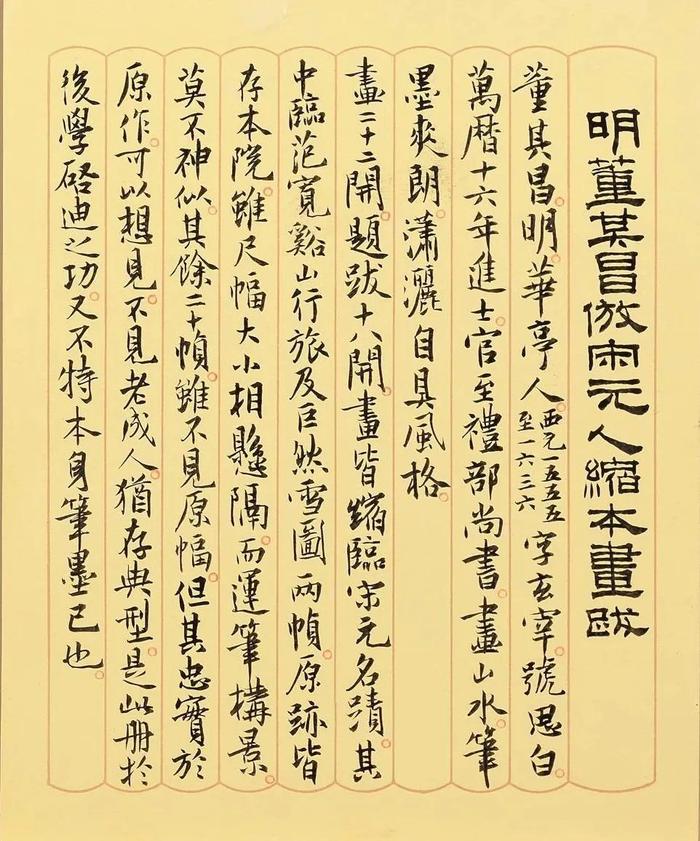 明董其昌倣宋元人縮本畫跋
董其昌。明。華亭人。西元一五五五至一六三六字玄宰。號思白。
萬曆十六年進士。官至禮部尚書。畫山水。筆
墨爽朗。瀟灑自具風格。
畫二十二開。題跋十八開。畫皆縮臨宋元名蹟。其
中臨范寬谿山行旅及巨然雪圖兩幀。原跡皆
存本院。雖尺幅大小相懸隔。而運筆構景。
莫不神似。其餘二十幀。雖不見原幅。但其忠實於
原作。可以想見。不見老成人。猶存典型。是此册於
後學啓迪之功。又不特本身筆墨已也。